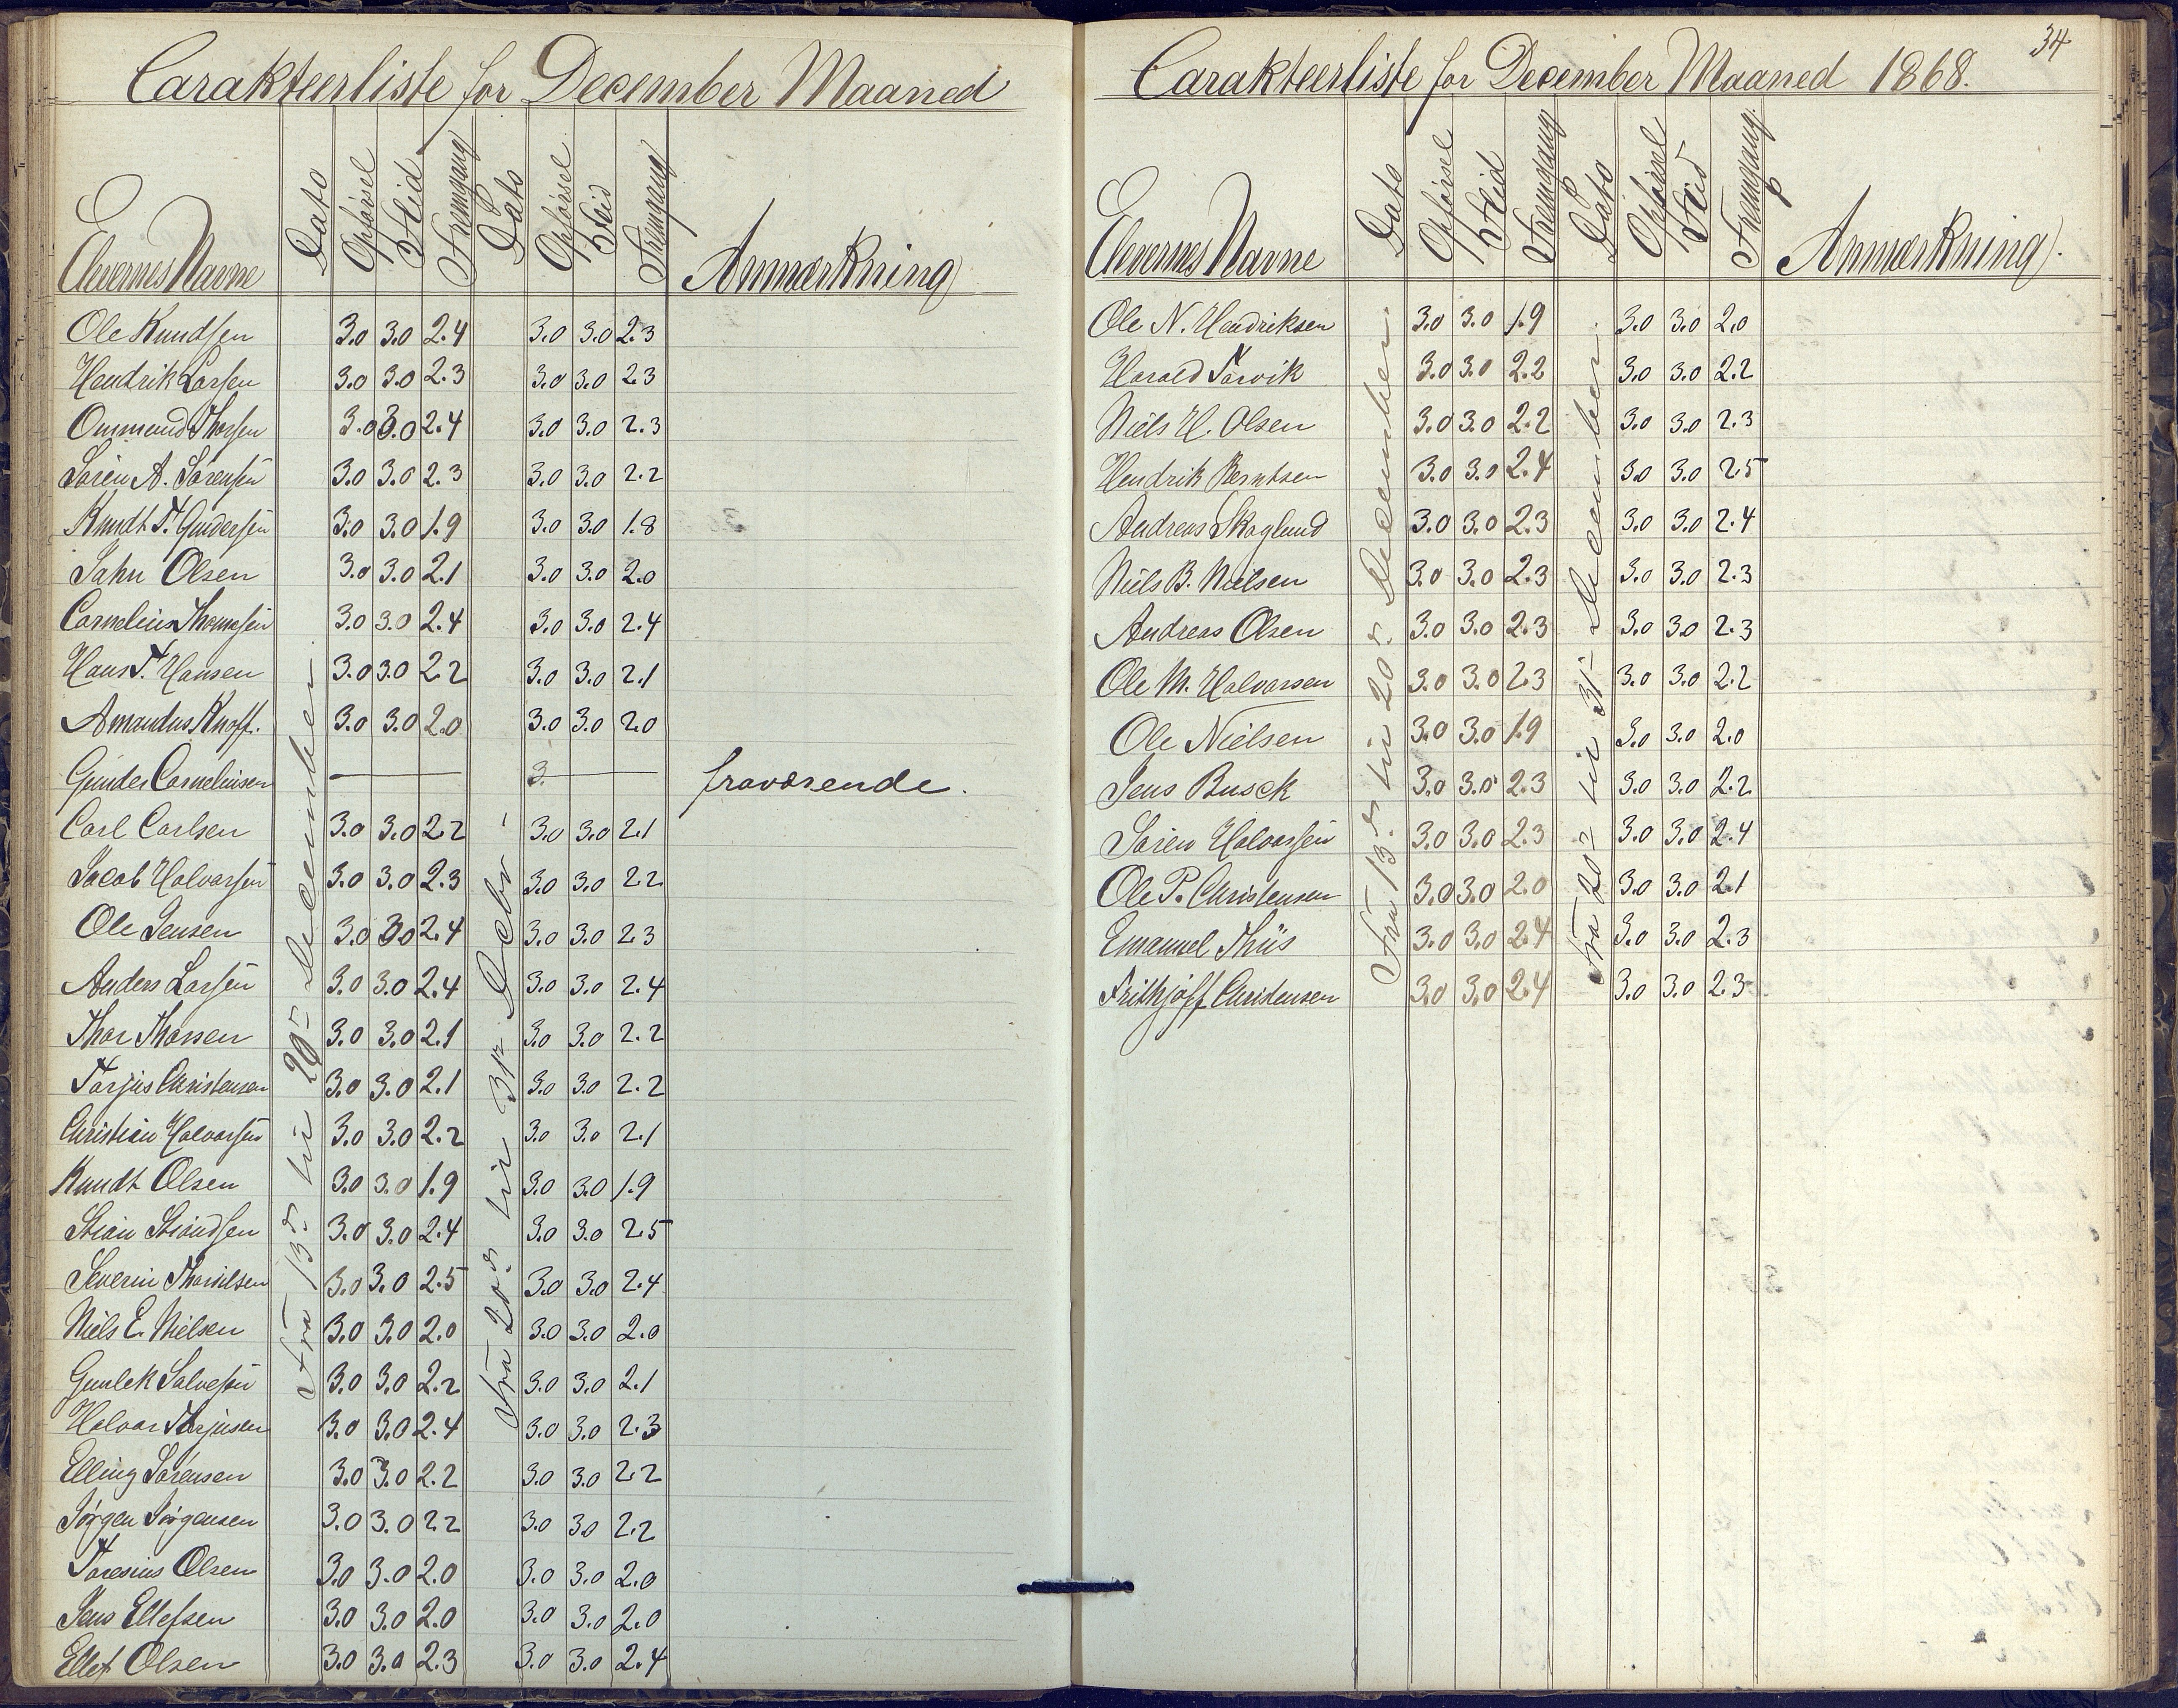 Carakteerliste for December Maaned
Elevernes Navne Dato Opførsel Flid Fremgang Dato Opførsel Flid Fremgang Anmærkning
Fra 13de til 20de December
Fra 20de til 31te Decbr
Ole Knudsen 3.0 3.0 2.4 3.0 3.0 2.3
Hendrik Larsen 3.0 3.0 2.3 3.0 3.0 2.3
Ommund Thorsen 3.0 3.0 2.4 3.0 3.0 2.3
Søren A. Sørensen 3.0 3.0 2.3 3.0 3.0 2.2
Knudt T. Gundersen 3.0 3.0 1.9 3.0 3.0 1.8
Jahn Olsen 3.0 3.0 2.1 3.0 3.0 2.0
Cornelius Thomesen 3.0 3.0 2.4 3.0 3.0 2.4
Hans T. Hansen 3.0 3.0 2.2 3.0 3.0 2.1
Amandus Knoff. 3.0 3.0 2.0 3.0 3.0 2.0
Gunder Corneliusen — 3. — fraværende.
Carl Carlsen 3.0 3.0 2.2 3.0 3.0 2.1
Jacob Halvorsen 3.0 3.0 2.3 3.0 3.0 2.2
Ole Jensen 3.0 3.0 2.4 3.0 3.0 2.3
Anders Larsen 3.0 3.0 2.4 3.0 3.0 2.4
Thor Thorsen 3.0 3.0 2.1 3.0 3.0 2.2
Tarjus Christensen 3.0 3.0 2.1 3.0 3.0 2.2
Christian Halvorsen 3.0 3.0 2.2 3.0 3.0 2.1
Knudt Olsen 3.0 3.0 1.9 3.0 3.0 1.9
Stian Stiandsen 3.0 3.0 2.4 3.0 3.0 2.5
Severin 3.0 3.0 2.5 3.0 3.0 2.4
Niels E. Nielsen 3.0 3.0 2.0 3.0 3.0 2.0
Gunlek Salvesen 3.0 3.0 2.2 3.0 3.0 2.1
Halvor Terjusen 3.0 3.0 2.4 3.0 3.0 2.3
Elling Sørensen 3.0 3.0 2.2 3.0 3.0 2.2
Jørgen Jørgensen 3.0 3.0 2.2 3.0 3.0 2.2
Taresius Olsen 3.0 3.0 2.0 3.0 3.0 2.0
Jens Ellefsen 3.0 3.0 2.0 3.0 3.0 2.0
Ellef Olsen 3.0 3.0 2.3 3.0 3.0 2.4
34
Carakteerliste for December Maaned 1868.
Elevernes Navne Dato Opførsel Flid Fremgang Dato Opførsel Flid Fremgang. Anmærkning.
Fra 13de til 20de December.
Fra 20de til 31te December.
Ole N. Hendriksen 3.0 3.0 1.9 3.0 3.0 2.0
Harald Tarvik 3.0 3.0 2.2 3.0 3.0 2.2
Niels H. Olsen 3.0 3.0 2.2 3.0 3.0 2.3
Hendrik Berntsen 3.0 3.0 2.4 3.0 3.0 2.5
Andreas Skoglund 3.0 3.0 2.3 3.0 3.0 2.4
Niels B. Nielsen 3.0 3.0 2.3 3.0 3.0 2.3
Andreas Olsen 3.0 3.0 2.3 3.0 3.0 2.3
Ole M. Halvorsen 3.0 3.0 2.3 3.0 3.0 2.2
Ole Nielsen 3.0 3.0 1.9 3.0 3.0 2.0
Jens Busck 3.0 3.0 2.3 3.0 3.0 2.2
Søren Halvorsen 3.0 3.0 2.3 3.0 3.0 2.4
Ole P. Christensen 3.0 3.0 2.0 3.0 3.0 2.1
Emanuel Thiis 3.0 3.0 2.4 3.0 3.0 2.3
Frithjoff Christensen 3.0 3.0 2.4 3.0 3.0 2.3